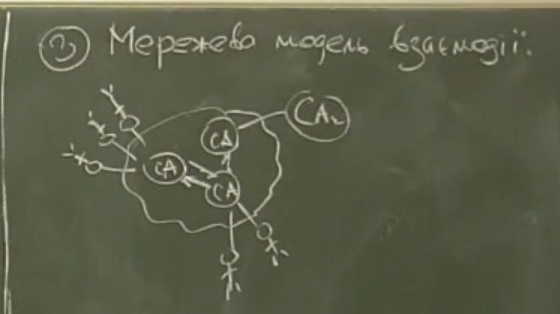 3) Мережева модель взаємодії:
CA
CA₂
CA
CA